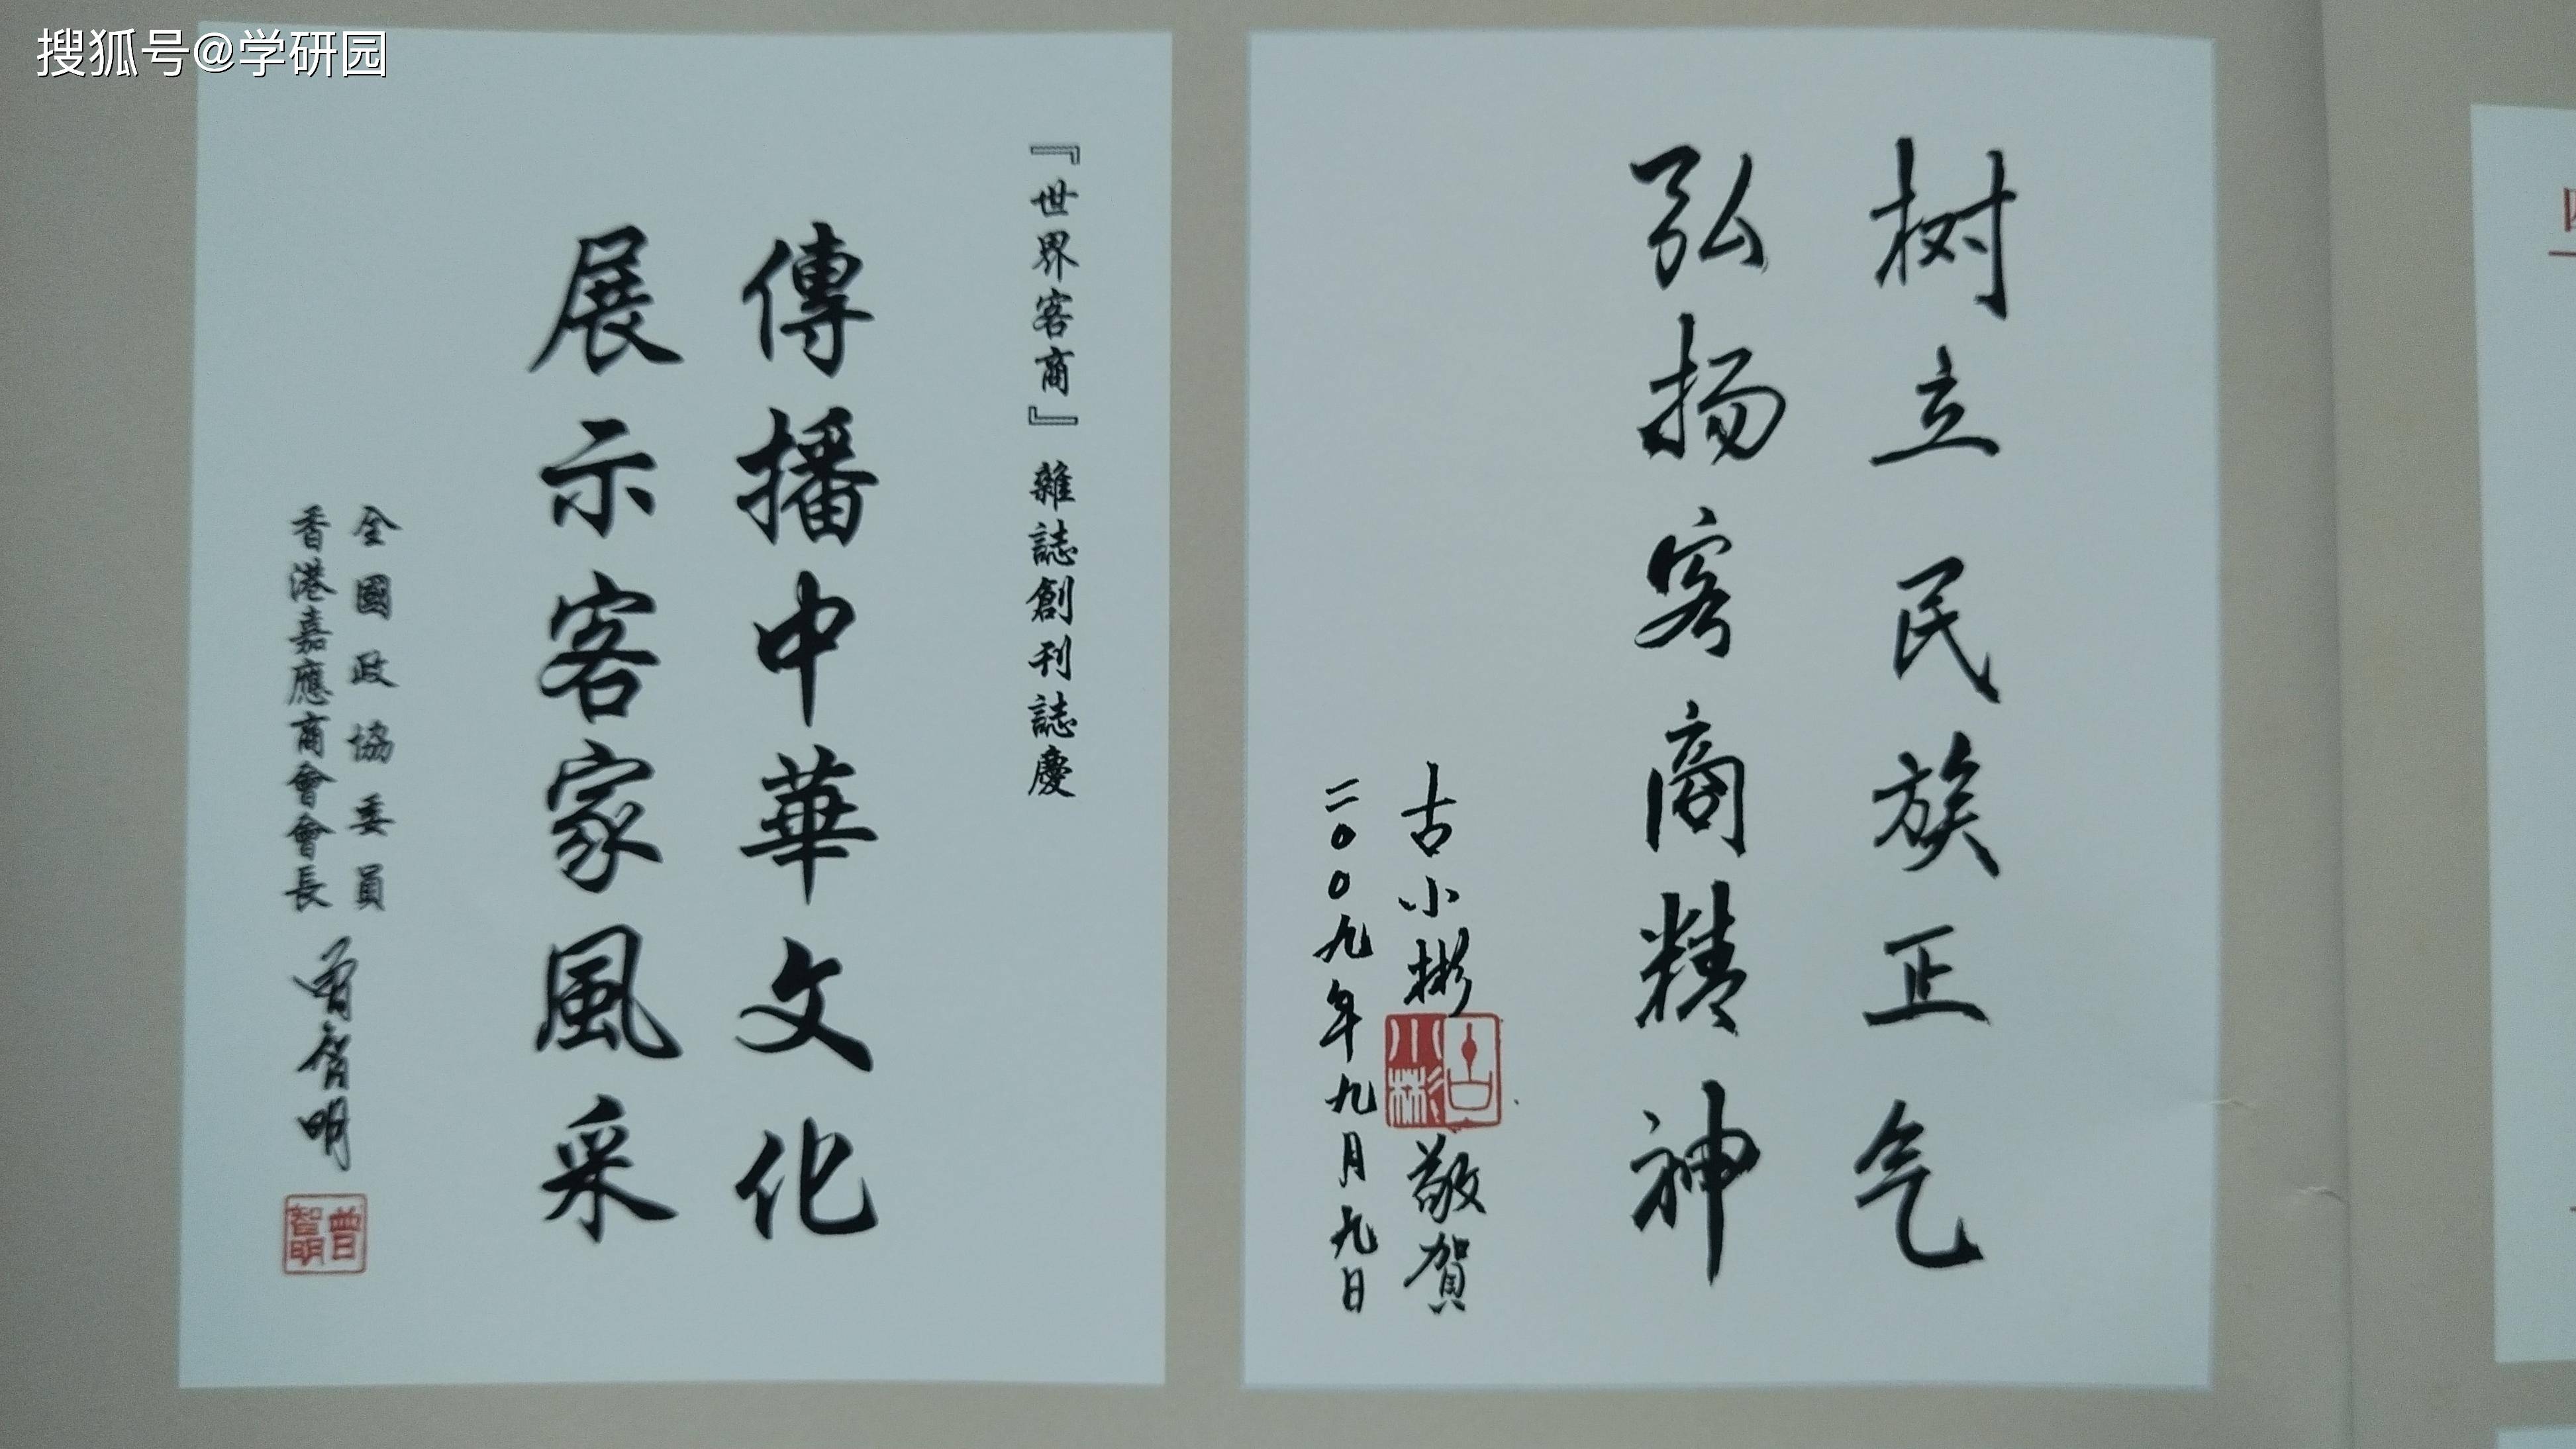 搜狐号@学研园
树立民族正气
弘扬客商精神
古小彬
古小彬
敬贺
二〇〇九年九月九日
『世界客商』雜誌創刊誌慶
傳播中華文化
展示客家風采
全國政協委員
香港嘉應商會會長
曾智明
曾智明